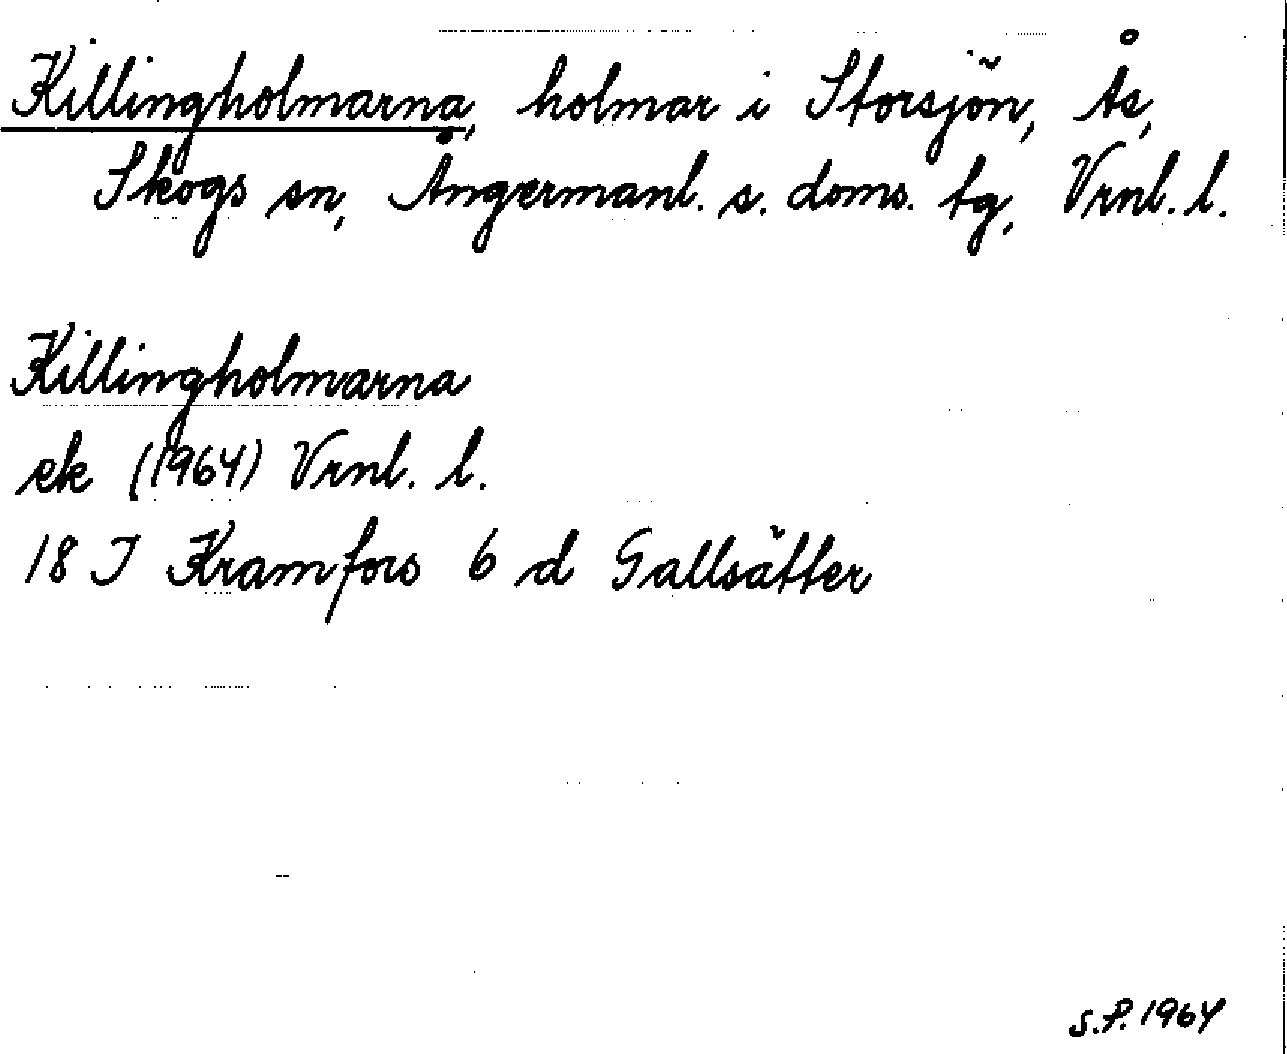 Killingholmarna, holmar i Storsjön, Ås,
Skogs sn, Ångermanl. s. doms. tg, Vrnl. l.
Killingholmarna
ek (1964) Vrnl. l.
18 I Kramfors 6 d Gallsätter
S.P. 1964